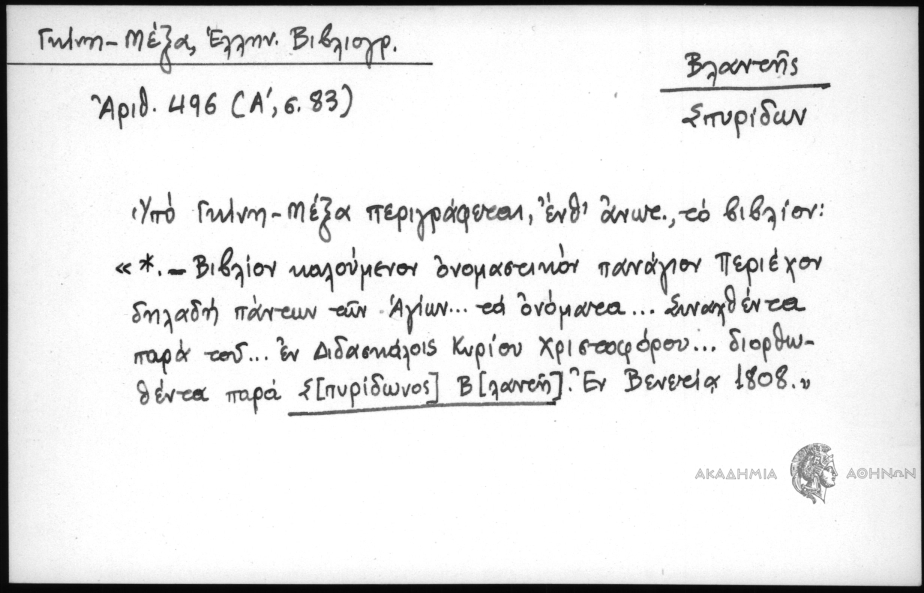 Γκίνη-Μέξα, Ἑλλην. Βιβλιογρ.
Ἀριθ. 496 (Α', σ. 83)
Βλαντῆς
Σπυρίδων
Ὑπό Γκίνη-Μέξα περιγράφεται, ἔνθ' ἄνωτ., τό βιβλίον:
«*.- Βιβλίον καλούμενον ὀνομαστικόν πανάγιον Περιέχον
δηλαδή πάντων τῶν Ἁγίων... τά ὀνόματα... Συναχθέντα
παρά τοῦ... ἐν Διδασκάλοις Κυρίου Χριστοφόρου... διορθω-
θέντα παρά Σ[πυρίδωνος] Β[λαντῆ]. Ἐν Βενετίᾳ 1808.»
ΑΚΑΔΗΜΙΑ ΑΘΗΝΩΝ